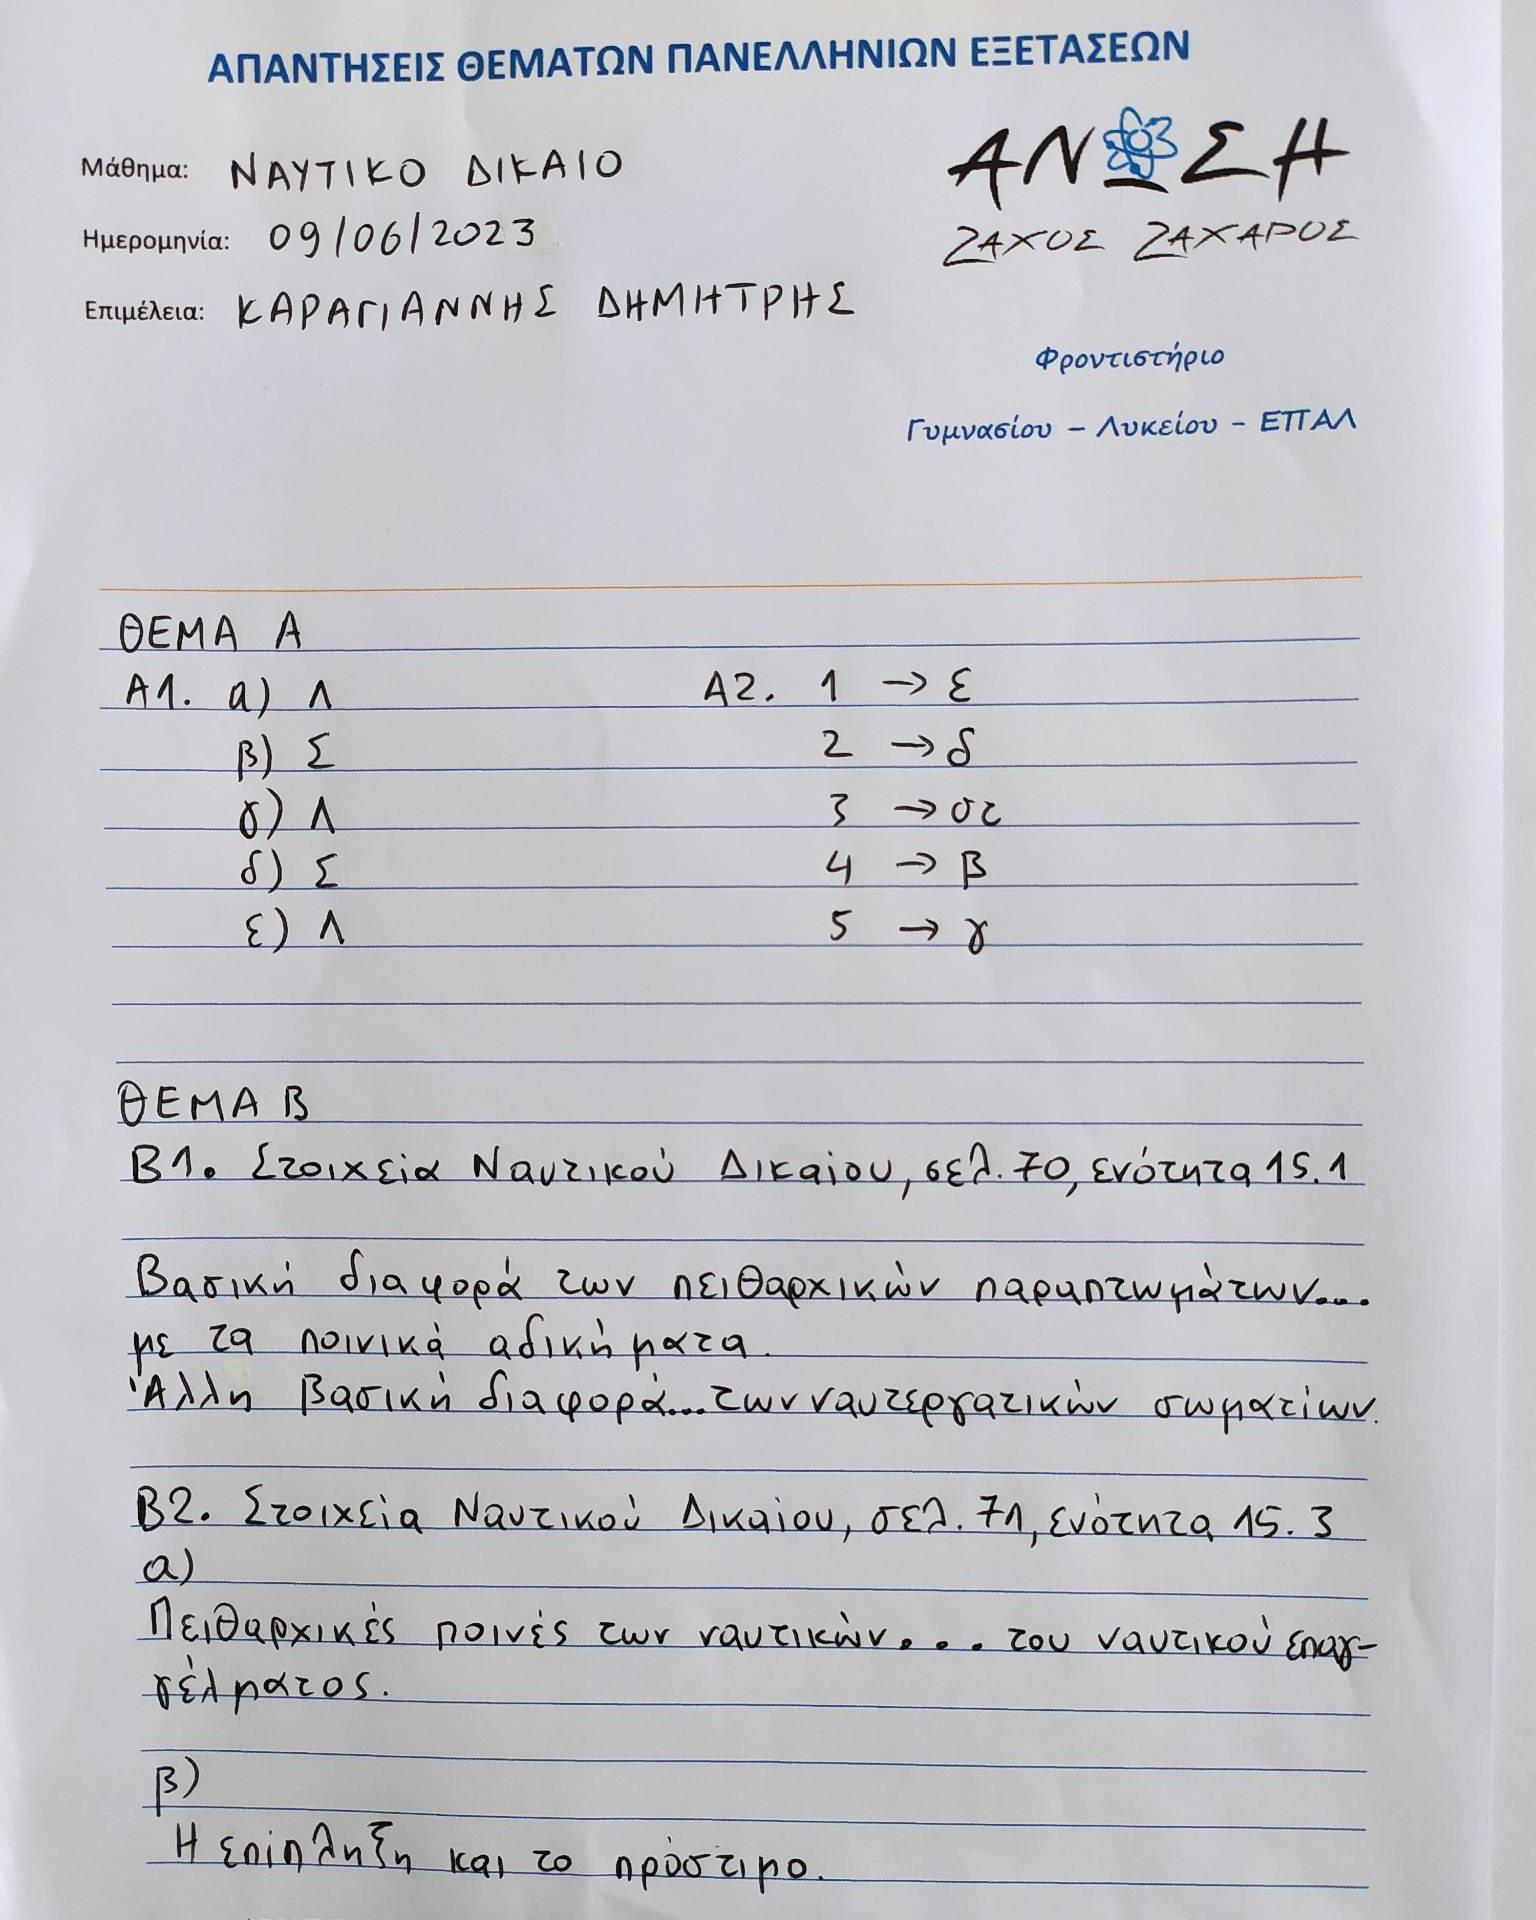 ΑΠΑΝΤΗΣΕΙΣ ΘΕΜΑΤΩΝ ΠΑΝΕΛΛΗΝΙΩΝ ΕΞΕΤΑΣΕΩΝ
Μάθημα: ΝΑΥΤΙΚΟ ΔΙΚΑΙΟ
ΑΝΩΣΗ
Ημερομηνία: 09/06/2023
ΖΑΧΟΣ ΖΑΧΑΡΟΣ
Επιμέλεια: ΚΑΡΑΓΙΑΝΝΗΣ ΔΗΜΗΤΡΗΣ
Φροντιστήριο
Γυμνασίου – Λυκείου - ΕΠΑΛ
ΘΕΜΑ Α
Α1. α) Λ Α2. 1 → ε
β) Σ 2 → δ
γ) Λ 3 → στ
δ) Σ 4 → β
ε) Λ 5 → γ
ΘΕΜΑ Β
Β1. Στοιχεία Ναυτικού Δικαίου, σελ. 70, ενότητα 15.1
Βασική διαφορά των πειθαρχικών παραπτωμάτων...
με τα ποινικά αδικήματα.
Άλλη βασική διαφορά... των ναυτεργατικών σωματίων.
Β2. Στοιχεία Ναυτικού Δικαίου, σελ. 71, ενότητα 15.3
α)
Πειθαρχικές ποινές των ναυτικών... του ναυτικού επαγ-
γέλματος.
β)
Η επίπληξη και το πρόστιμο.